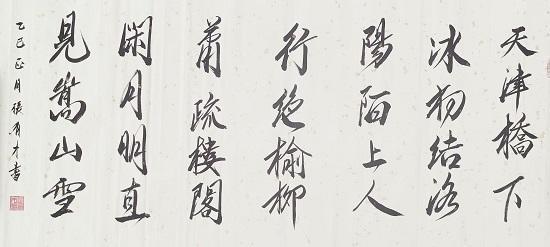 天津橋下
冰初結洛
陽陌上人
行絕榆柳
蕭疏樓閣
閑月明直
見嵩山雪
乙巳正月張有才書